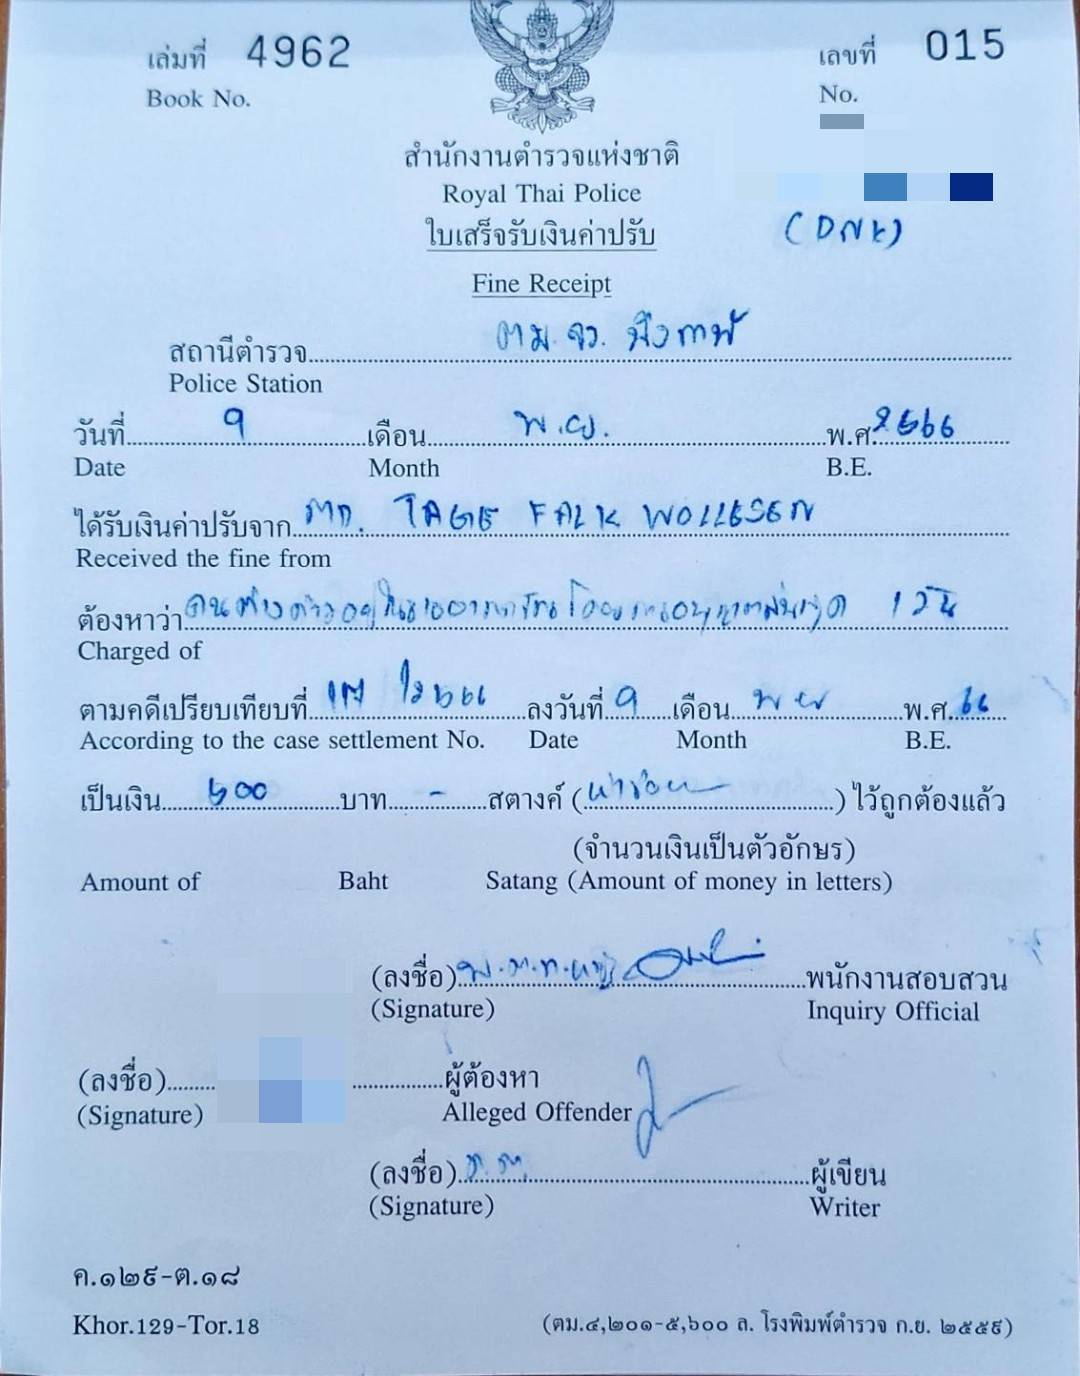 เล่มที่ 4962 เลขที่ 015
Book No. No.
สำนักงานตำรวจแห่งชาติ
Royal Thai Police
ใบเสร็จรับเงินค่าปรับ (DNK)
Fine Receipt
สถานีตำรวจ ตม.จว.พังงา
Police Station
วันที่ 9 เดือน พ.ย. พ.ศ. 2566
Date Month B.E.
ได้รับเงินค่าปรับจาก MR. TAGE FALK WOLLESEN
Received the fine from
ต้องหาว่า คนต่างด้าวอยู่ในราชอาณาจักรโดยการอนุญาตสิ้นสุด 1 วัน
Charged of
ตามคดีเปรียบเทียบที่ ลงวันที่ 9 เดือน พ.ย. พ.ศ. 66
According to the case settlement No. Date Month B.E.
เป็นเงิน 500 บาท - สตางค์ (ห้าร้อย) ไว้ถูกต้องแล้ว
(จำนวนเงินเป็นตัวอักษร)
Amount of Baht Satang (Amount of money in letters)
(ลงชื่อ) พ.ต.ท.หญิง พนักงานสอบสวน
(Signature) Inquiry Official
(ลงชื่อ) ผู้ต้องหา
(Signature) Alleged Offender
(ลงชื่อ) ผู้เขียน
(Signature) Writer
ค.๑๒๙-ต.๑๘
Khor.129-Tor.18 (ตม.๔,๒๐๑-๕,๖๐๐ ล. โรงพิมพ์ตำรวจ ก.ย. ๒๕๕๙)